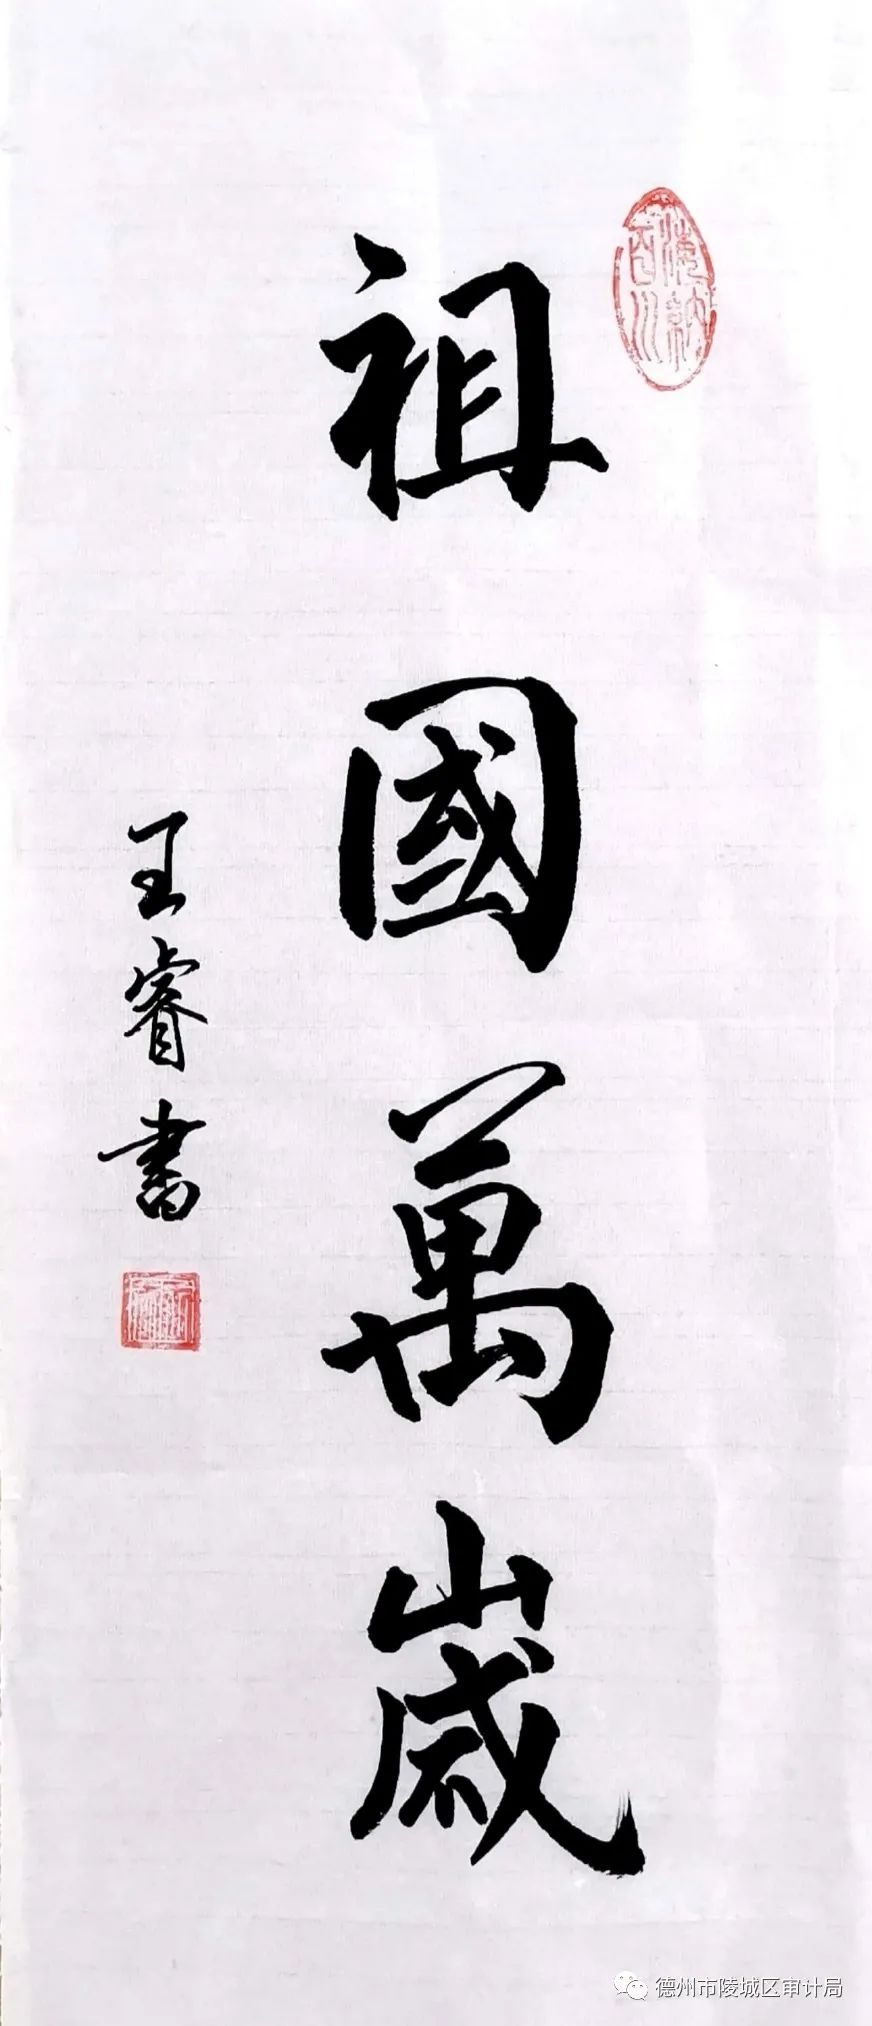 祖國萬歲
王睿書
海納百川
德州市陵城区审计局